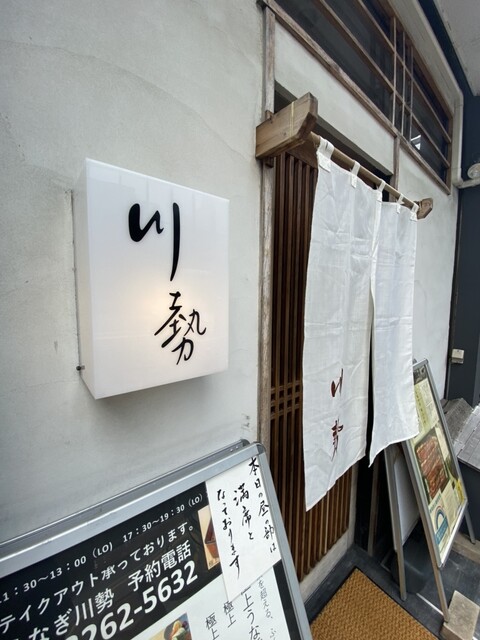 川勢
川勢
本日の昼の部は
満席と
なっております
11:30~13:00（LO） 17:30~19:30（LO）
テイクアウト承っております。
なぎ川勢 予約電話
262-5632
を超える、ふ
上うな
極上
極上